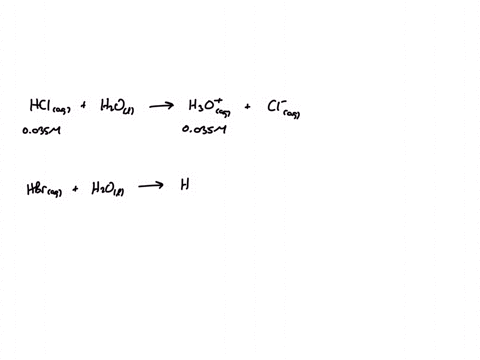 HCl(aq) + H₂O(l) → H₃O⁺(aq) + Cl⁻(aq)
0.035M 0.035M
HBr(aq) + H₂O(l) → H